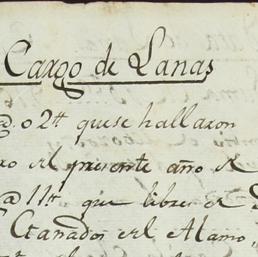 Cargo de Lanas
@ 02tt que se hallaron
el presente año de
@ 11tt que libre de
Ganados el Alamo,